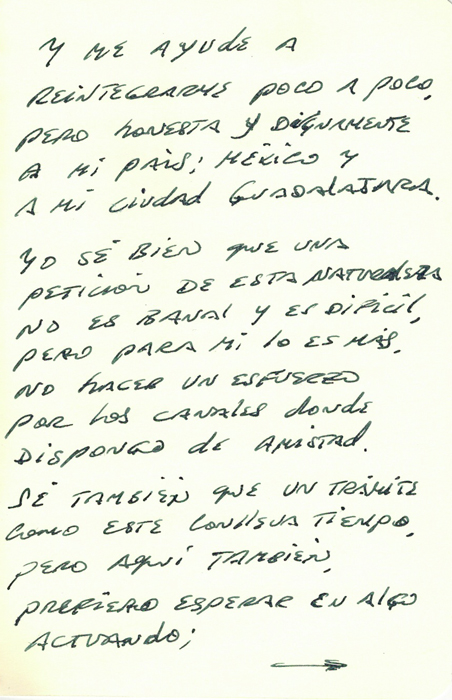 Y ME AYUDE A
REINTEGRARME POCO A POCO,
PERO HONESTA Y DIGNAMENTE
A MI PAÍS; MÉXICO Y
A MI CIUDAD GUADALAJARA.
YO SÉ BIEN QUE UNA
PETICIÓN DE ESTA NATURALEZA
NO ES BANAL Y ES DIFÍCIL,
PERO PARA MI LO ES MÁS,
NO HACER UN ESFUERZO
POR LOS CANALES DONDE
DISPONGO DE AMISTAD.
SÉ TAMBIÉN QUE UN TRÁMITE
COMO ESTE CONLLEVA TIEMPO,
PERO AQUÍ TAMBIÉN,
PREFIERO ESPERAR EN ALGO
ACTUANDO;
→